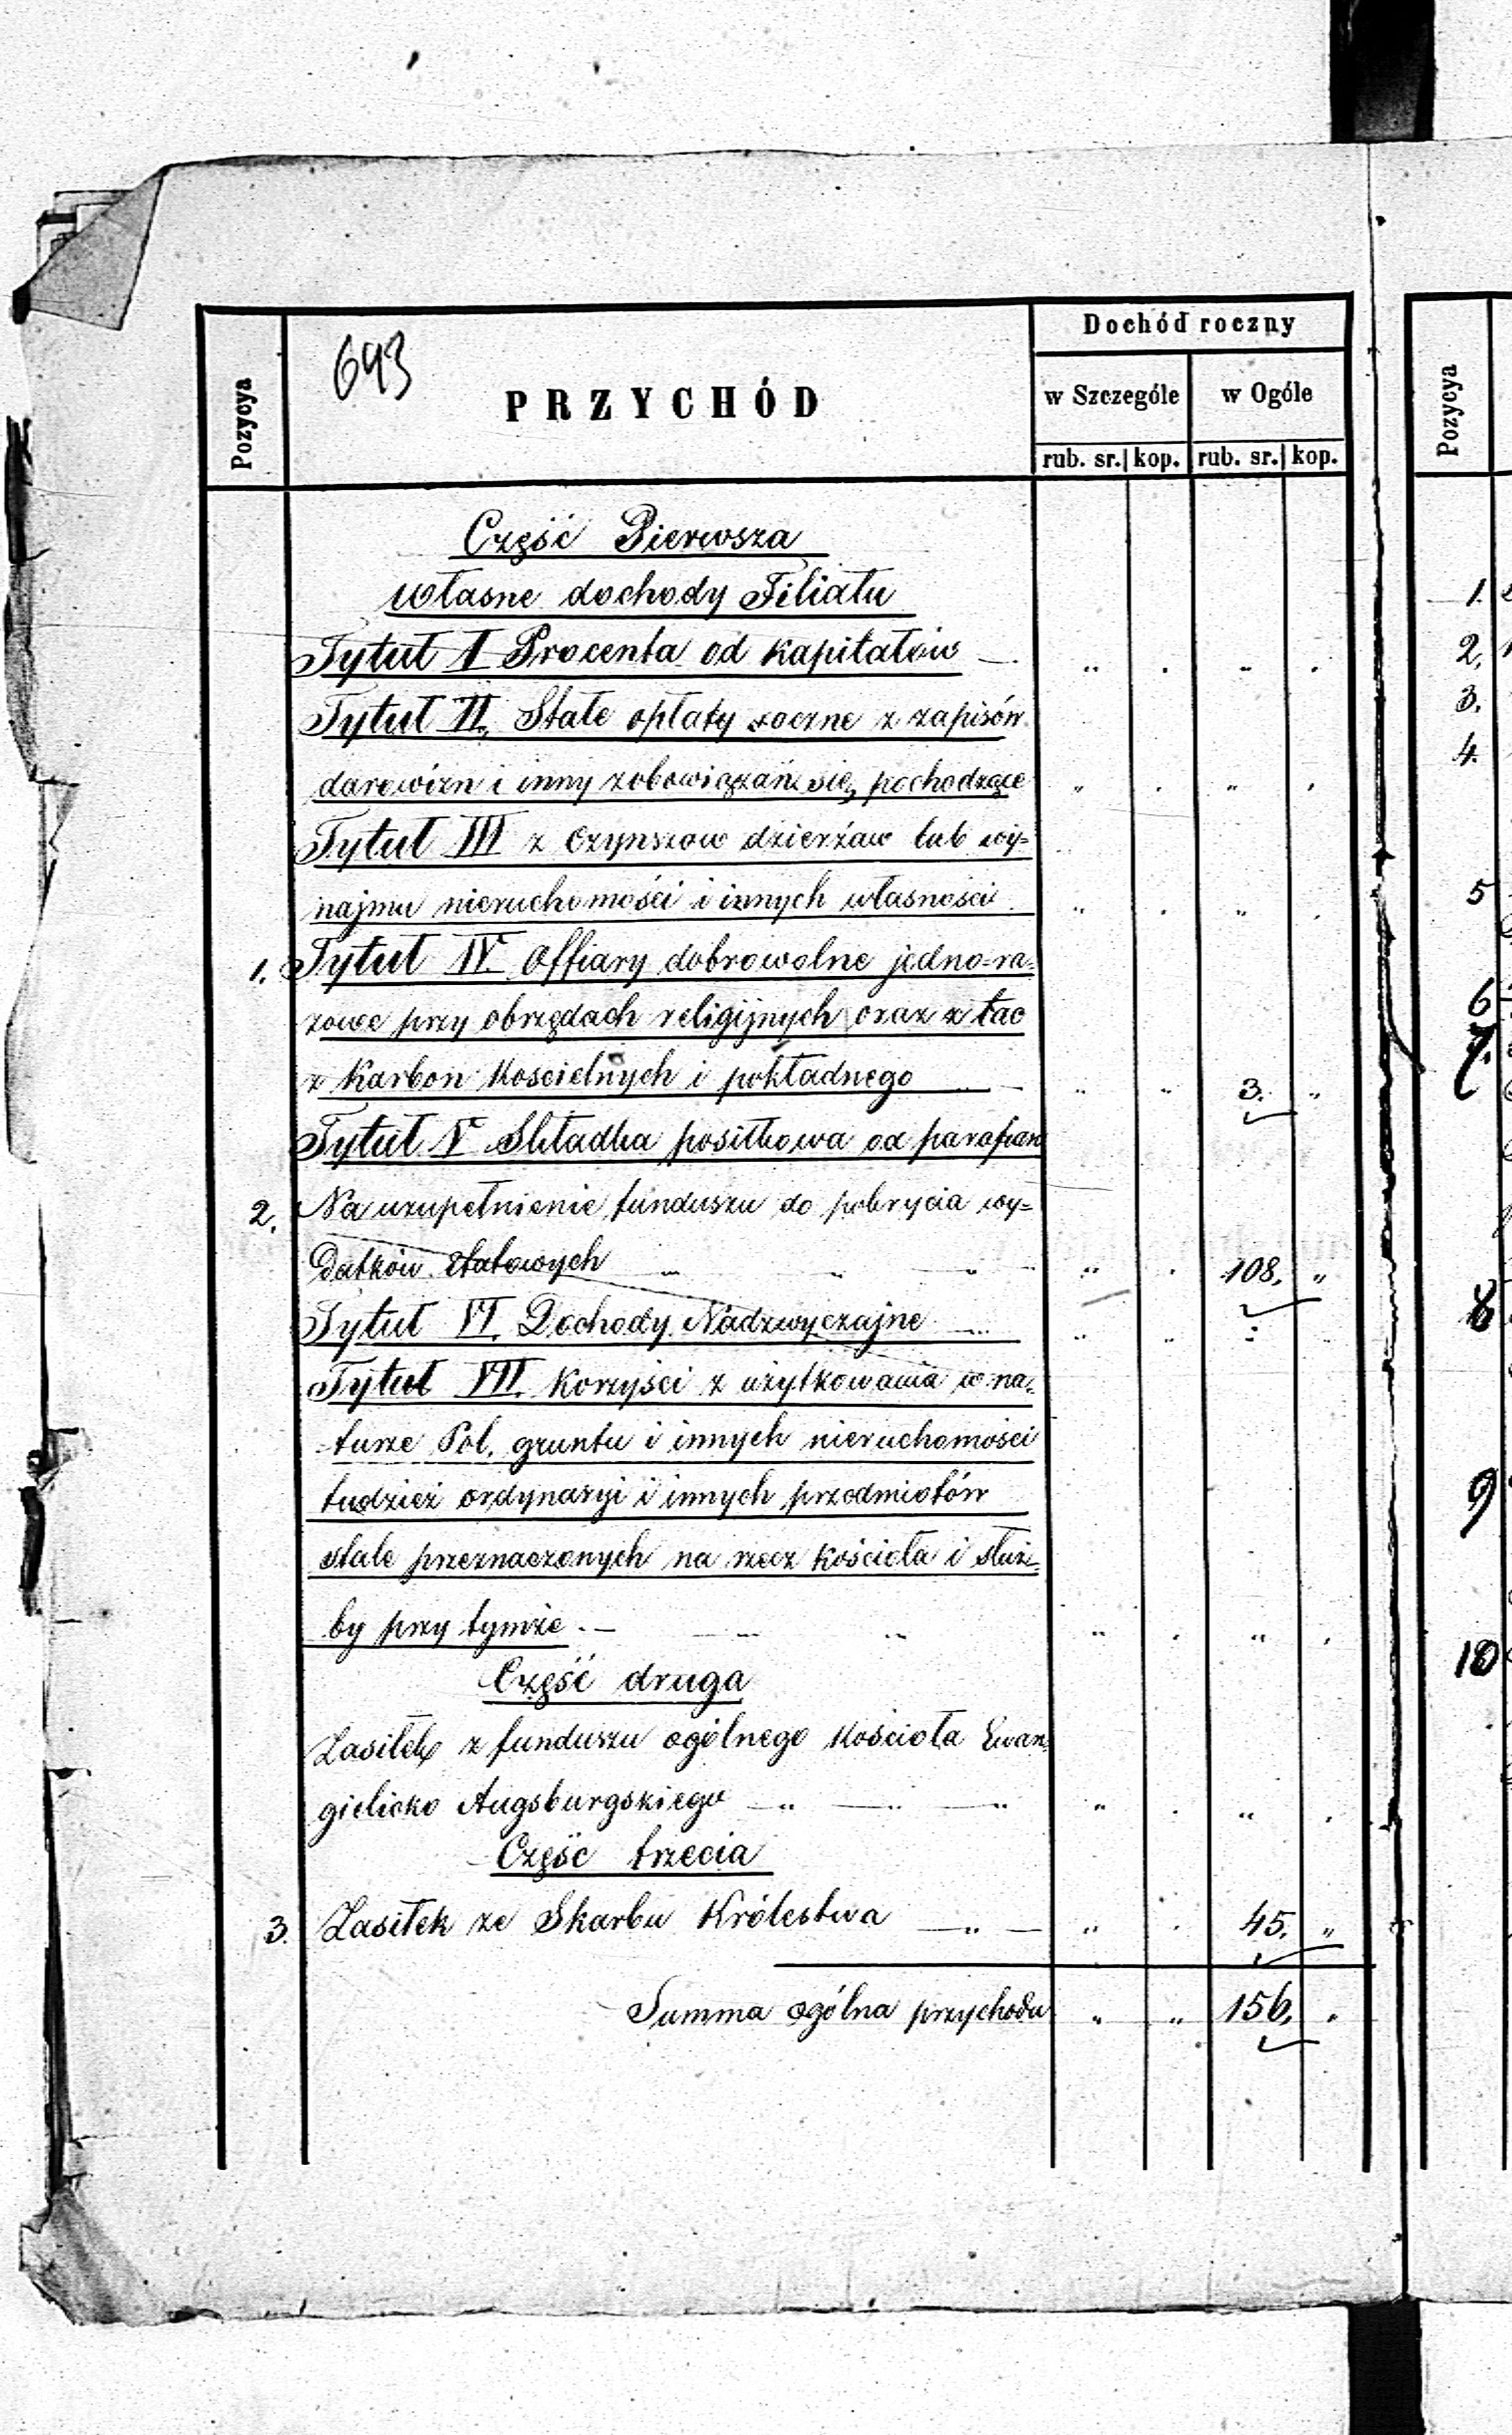 693
Pozycya
PRZYCHÓD
Dochód roczny
w Szczególe w Ogóle
rub. sr. kop. rub. sr. kop.
Pozycya
Część Pierwsza
Własne dochody Filiału
Tytuł I Procenta od kapitałów — „ . „ .
Tytuł II. Stałe opłaty roczne z zapisów
darowizn i inny zobowiązań się pochodzące „ . „ .
Tytuł III z Czynszow dzierżaw lub wy=
najmu nieruchomości i innych własności „ . „ .
1. Tytuł IV. Offiary dobrowolne jedno-ra=
zowe przy obrzędach religijnych oraz z tac
z Karbon Kościelnych i pokładnego „ „ 3. „
Tytuł V Składka posiłkowa od parafian
2. Na uzupełnienie funduszu do pokrycia wy=
datków etatowych „ . 108. „
Tytuł VI. Dochody Nadzwyczajne „ „ „ „
Tytuł VII. Korzyści z użytkowania w na=
turze Pol. gruntu i innych nieruchomości
tudzież ordynaryi i innych przedmiotów
stale przeznaczonych na rzecz kościoła i służ=
by przy tymże „ . „ .
Część druga
Zasiłek z funduszu ogólnego Kościoła Ewan=
gielicko Augsburgskiego „ . „ .
Część trzecia
3. Zasiłek ze Skarbu Królestwa „ . 45. „
Summa ogólna przychodu „ „ 156. „
1.
2.
3.
4.
5
6
7.
8
9
10